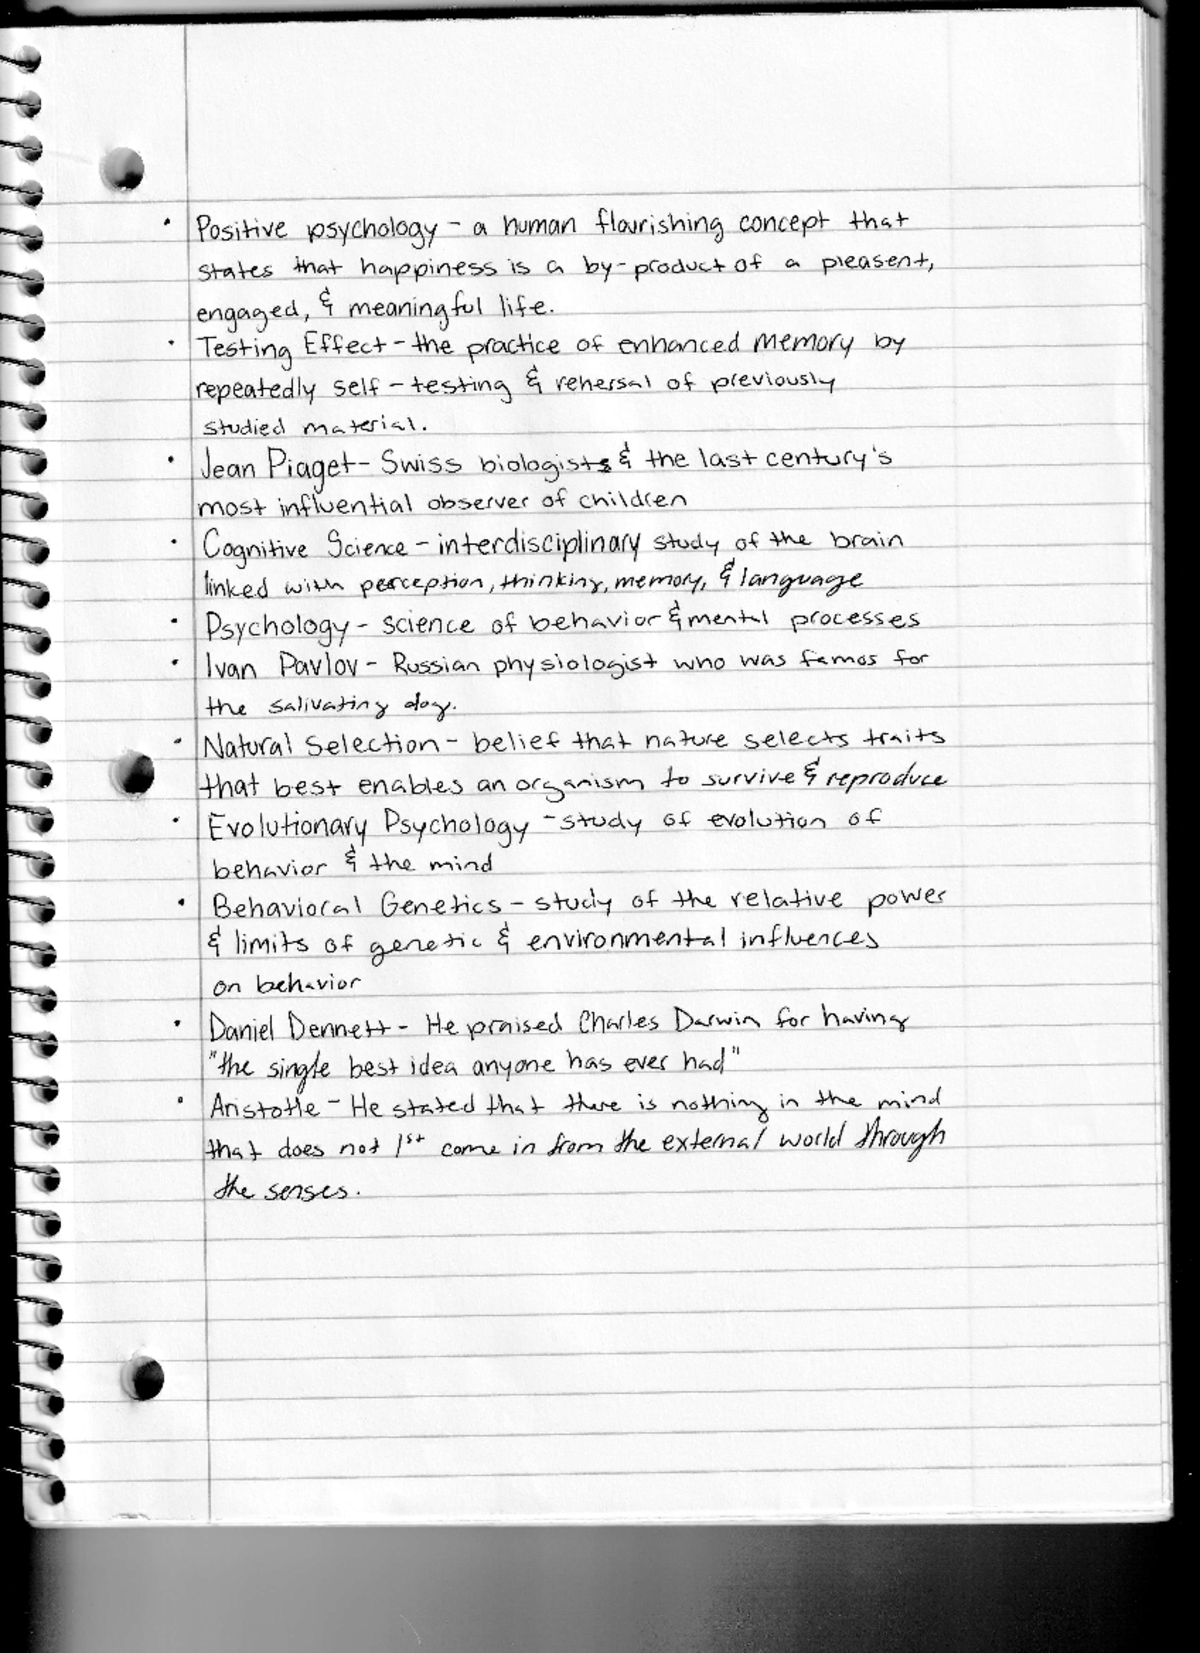 • Positive psychology - a human flourishing concept that
states that happiness is a by-product of a pleasent,
engaged, & meaningful life.
• Testing Effect - the practice of enhanced memory by
repeatedly self-testing & rehersal of previously
studied material.
• Jean Piaget - Swiss biologists & the last century's
most influential observer of children
• Cognitive Science - interdisciplinary study of the brain
linked with perception, thinking, memory, & language
• Psychology - science of behavior & mental processes
• Ivan Pavlov - Russian physiologist who was famos for
the salivating dog.
• Natural Selection - belief that nature selects traits
that best enables an organism to survive & reproduce
• Evolutionary Psychology - study of evolution of
behavior & the mind
• Behavioral Genetics - study of the relative power
& limits of genetic & environmental influences
on behavior
• Daniel Dennett - He praised Charles Darwin for having
"the single best idea anyone has ever had"
• Aristotle - He stated that there is nothing in the mind
that does not 1st come in from the external world through
the senses.